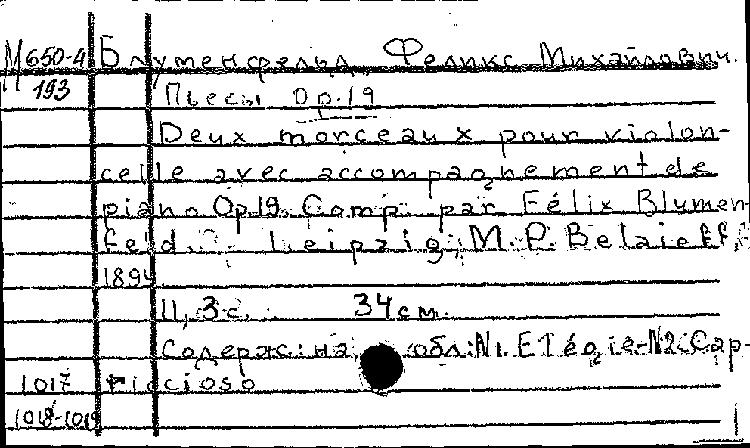 М650-4 Блуменфельд, Феликс Михайлович.
193 Пьесы Op.19
Deux morceaux pour violon-
celle avec accompagnement de
piano Op.19. Comp. par Félix Blumen-
feld. Leipzig, M.P. Belaieff,
1894
11, 3 с. 34 см.
Содерж: на обл: N1. Elégie-N2. Cap-
1017 riccioso
1018-1019